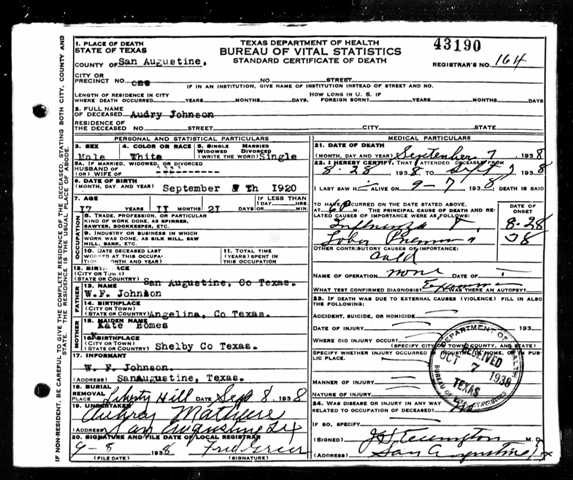 1. PLACE OF DEATH
STATE OF TEXAS
COUNTY OF San Augustine,
CITY OR
PRECINCT NO. one
TEXAS DEPARTMENT OF HEALTH
BUREAU OF VITAL STATISTICS
STANDARD CERTIFICATE OF DEATH
43190
REGISTRAR'S NO. 164
NO. STREET
IF IN AN INSTITUTION, GIVE NAME OF INSTITUTION INSTEAD OF STREET AND NO.
LENGTH OF RESIDENCE IN CITY
WHERE DEATH OCCURRED YEARS MONTHS DAYS
HOW LONG IN U. S. IF
FOREIGN BORN? YEARS MONTHS DAYS
2. FULL NAME
OF DECEASED Audry Johnson
RESIDENCE OF
THE DECEASED NO. STREET CITY STATE
PERSONAL AND STATISTICAL PARTICULARS
3. SEX
Male
4. COLOR OR RACE
White
5. SINGLE MARRIED
WIDOWED DIVORCED
(WRITE THE WORD) Single
5A. IF MARRIED, WIDOWED, OR DIVORCED
HUSBAND OF
(OR) WIFE OF
6. DATE OF BIRTH
(MONTH, DAY, AND YEAR) September th 1920
7. AGE
17 YEARS 11 MONTHS 21 DAYS
IF LESS THAN
1 DAY
HOURS
MIN
OCCUPATION
8. TRADE, PROFESSION, OR PARTICULAR
KIND OF WORK DONE, AS SPINNER,
SAWYER, BOOKKEEPER, ETC.
9. INDUSTRY OR BUSINESS IN WHICH
WORK WAS DONE, AS SILK MILL, SAW
MILL, BANK, ETC.
10. DATE DECEASED LAST
WORKED AT THIS OCCUPATION
(MONTH AND YEAR)
11. TOTAL TIME
(YEARS) SPENT IN
THIS OCCUPATION
12. BIRTHPLACE
(CITY OR TOWN)
(STATE OR COUNTRY) San Augustine, Co Texas.
FATHER
13. NAME
W.F. Johnson
14. BIRTHPLACE
(CITY OR TOWN)
(STATE OR COUNTRY) Angelina, Co Texas.
MOTHER
15. MAIDEN NAME
Kate Homes
16. BIRTHPLACE
(CITY OR TOWN)
(STATE OR COUNTRY) Shelby Co Texas.
17. INFORMANT
W. F. Johnson.
(ADDRESS) SanAugustine, Texas.
18. BURIAL
REMOVAL
PLACE Liberty Hill Sep 8 1938
19. UNDERTAKER
(ADDRESS) San Augustine Tex
20. SIGNATURE AND FILE DATE OF LOCAL REGISTRAR
9-8 1938
(FILE DATE) (SIGNATURE)
MEDICAL PARTICULARS
21. DATE OF DEATH
(MONTH, DAY AND YEAR) September 7 1938
22. I HEREBY CERTIFY, THAT I ATTENDED DECEASED FROM
8-28 1938 TO Sept 7 1938
I LAST SAW H ALIVE ON 9-7 1938 DEATH IS SAID
TO HAVE OCCURRED ON THE DATE STATED ABOVE,
AT M. THE PRINCIPAL CAUSE OF DEATH AND RELATED
CAUSES OF IMPORTANCE WERE AS FOLLOWS:
DATE OF
ONSET
8-28
38
Influenza
Lobar Pneumonia
OTHER CONTRIBUTORY CAUSES OF IMPORTANCE:
Cold
NAME OF OPERATION none DATE OF
WHAT TEST CONFIRMED DIAGNOSIS? WAS THERE AN AUTOPSY?
23. IF DEATH WAS DUE TO EXTERNAL CAUSES (VIOLENCE) FILL IN ALSO
THE FOLLOWING:
ACCIDENT, SUICIDE, OR HOMICIDE?
DATE OF INJURY 193
WHERE DID INJURY OCCUR?
(SPECIFY CITY, TOWN, COUNTY, AND STATE)
SPECIFY WHETHER INJURY OCCURRED
PUBLIC PLACE.
MANNER OF INJURY
NATURE OF INJURY
RECEIVED
OCT 7 1938
TEXAS
24. WAS DISEASE OR INJURY IN ANY WAY
RELATED TO OCCUPATION OF DECEASED?
IF SO, SPECIFY
(SIGNED) M.D.
(ADDRESS) San Augustine Tx